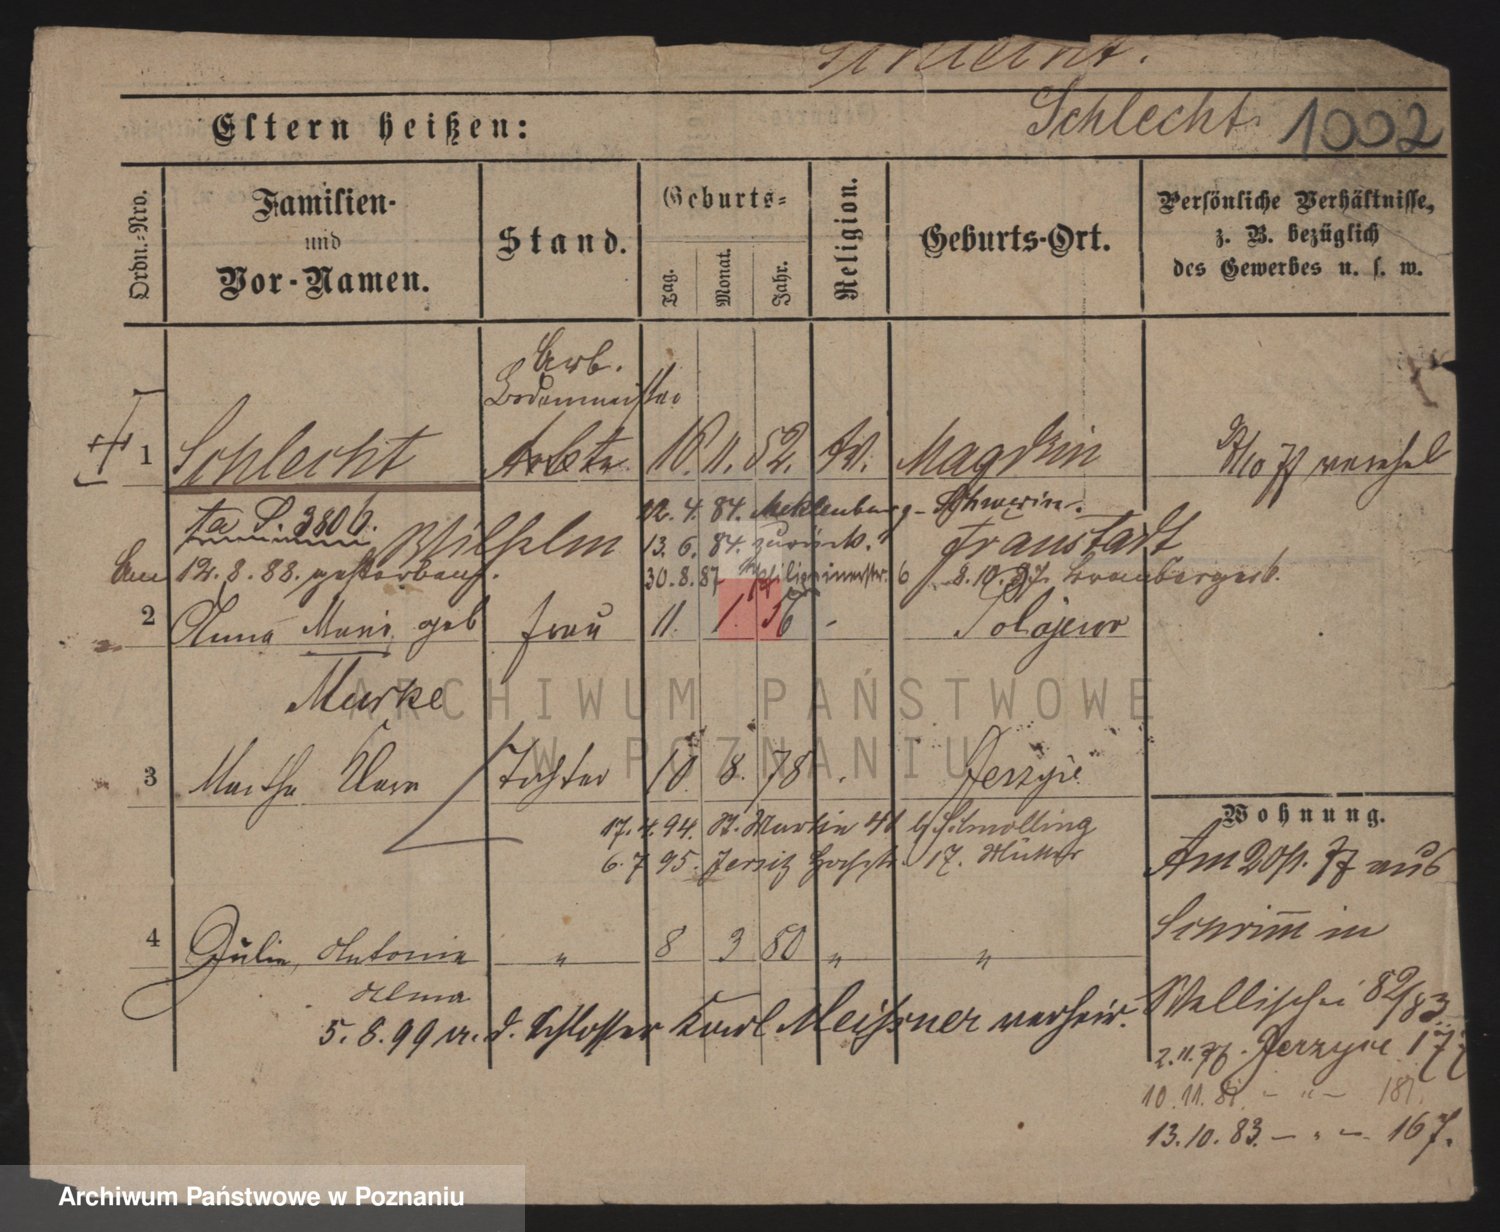 Schlecht.
Schlecht. 1002
Eltern heißen:
Ordn.-Nro.
Familien- und Vor-Namen.
Stand.
Geburts-
Tag.
Monat.
Jahr.
Religion.
Geburts-Ort.
Persönliche Verhältnisse,
z. B. bezüglich
des Gewerbes u. s. w.
Arb.
Bodenmeister
1 Schlecht 18. 11. 52. Ev.
ta P. 380 b.
Wilhelm
22. 4. 84. Mecklenburg-Schwerin.
13. 6. 84. zurück.
Fraustadt
Am 12. 8. 88. gestorben.
30. 8. 87
8. 10. 87.
2 Anna Marie geb Frau 11. 1. 56 - Polajewo
Murke
3 Martha Clara Tochter 10. 8. 78 . Jerzyce
17. 4. 94. St. Martin 41 b/ Schmolling
6. 7. 95. Jersitz 17. Mutter
4 Julie, Antonie " 8 3 80 " "
Alma
5. 8. 99 m. d. Schlosser Karl Meissner verheir.
Wohnung.
Am 20/9. 77 aus
Schrimm in
Wallischei 82/83
2. 11. 77. Jerzyce 177
10. 11. 81. - " - 181.
13. 10. 83. - " - 167.
ARCHIWUM PAŃSTWOWE
W POZNANIU
Archiwum Państwowe w Poznaniu